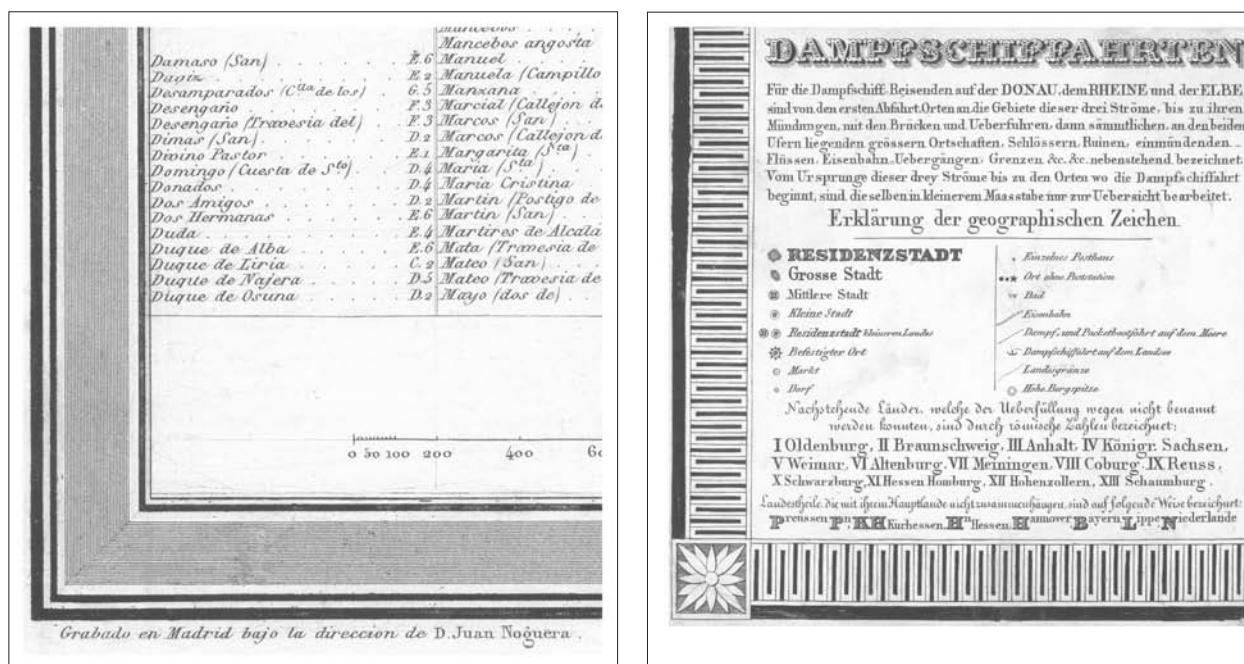 Mancebos angosta
Damaso (San) E.6 Manuel
Daoiz E.2 Manuela (Campillo
Desamparados (C.lla de los) G.5 Manzana
Desengaño F.3 Marcial (Callejon d
Desengaño (Travesia del) F.3 Marcos (San)
Dimas (San) D.2 Marcos (Callejon d
Divino Pastor E.1 Margarita (S.ta)
Domingo (Cuesta de S.to) D.4 Maria (S.ta)
Donados D.4 Maria Cristina
Dos Amigos D.2 Martin (Postigo de
Dos Hermanas E.6 Martin (San)
Duda E.4 Martires de Alcalá
Duque de Alba E.6 Mata (Travesia de
Duque de Liria C.2 Mateo (San)
Duque de Najera D.5 Mateo (Travesia de
Duque de Osuna D.2 Mayo (dos de)
0 50 100 200 400 60
Grabado en Madrid bajo la direccion de D. Juan Noguera.
DAMPFSCHIFFAHRTEN
Für die Dampfschiff-Reisenden auf der DONAU, dem RHEINE und der ELBE
sind von den ersten Abfahrt.Orten an, die Gebiete dieser drei Ströme, bis zu ihren
Mündungen, mit den Brücken und Ueberfuhren, dann sämmtlichen, an den beiden
Ufern liegenden grössern Ortschaften, Schlössern, Ruinen, einmündenden
Flüssen, Eisenbahn-Uebergängen, Grenzen &c. &c. nebenstehend bezeichnet.
Vom Ursprunge dieser drey Ströme bis zu den Orten wo die Dampfschiffahrt
beginnt, sind dieselben in kleinerem Maasstabe nur zur Uebersicht bearbeitet.
Erklärung der geographischen Zeichen.
RESIDENZSTADT
Grosse Stadt
Mittlere Stadt
Kleine Stadt
Residenzstadt kleineren Landes
Befestigter Ort
Markt
Dorf
Einzelnes Posthaus
Ort ohne Poststation
Bad
Eisenbahn
Dampf, und Packetbootfahrt auf dem Meere
Dampfschiffahrt auf dem Landsee
Landesgränze
Hohe Bergspitze
Nachstehende Länder, welche der Ueberfüllung wegen nicht benannt
werden konnten, sind durch römische Zahlen bezeichnet:
I Oldenburg, II Braunschweig, III Anhalt, IV Königr. Sachsen,
V Weimar, VI Altenburg, VII Meiningen, VIII Coburg, IX Reuss,
X Schwarzburg, XI Hessen Homburg, XII Hohenzollern, XIII Schaumburg.
Landestheile, die mit ihrem Hauptlande nicht zusammenhängen, sind auf folgende Weise bezeichnet:
Preussen Pn, KH Kurhessen, Hn Hessen, Hannover, Bayern, Lippe, Niederlande